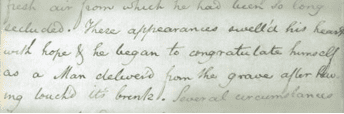 fresh air from which he had been so long
secluded. These appearances swell'd his heart
with hope & he began to congratulate himself
as a Man deliver'd from the grave after hav-
ing touch'd it's brink. Several circumstances